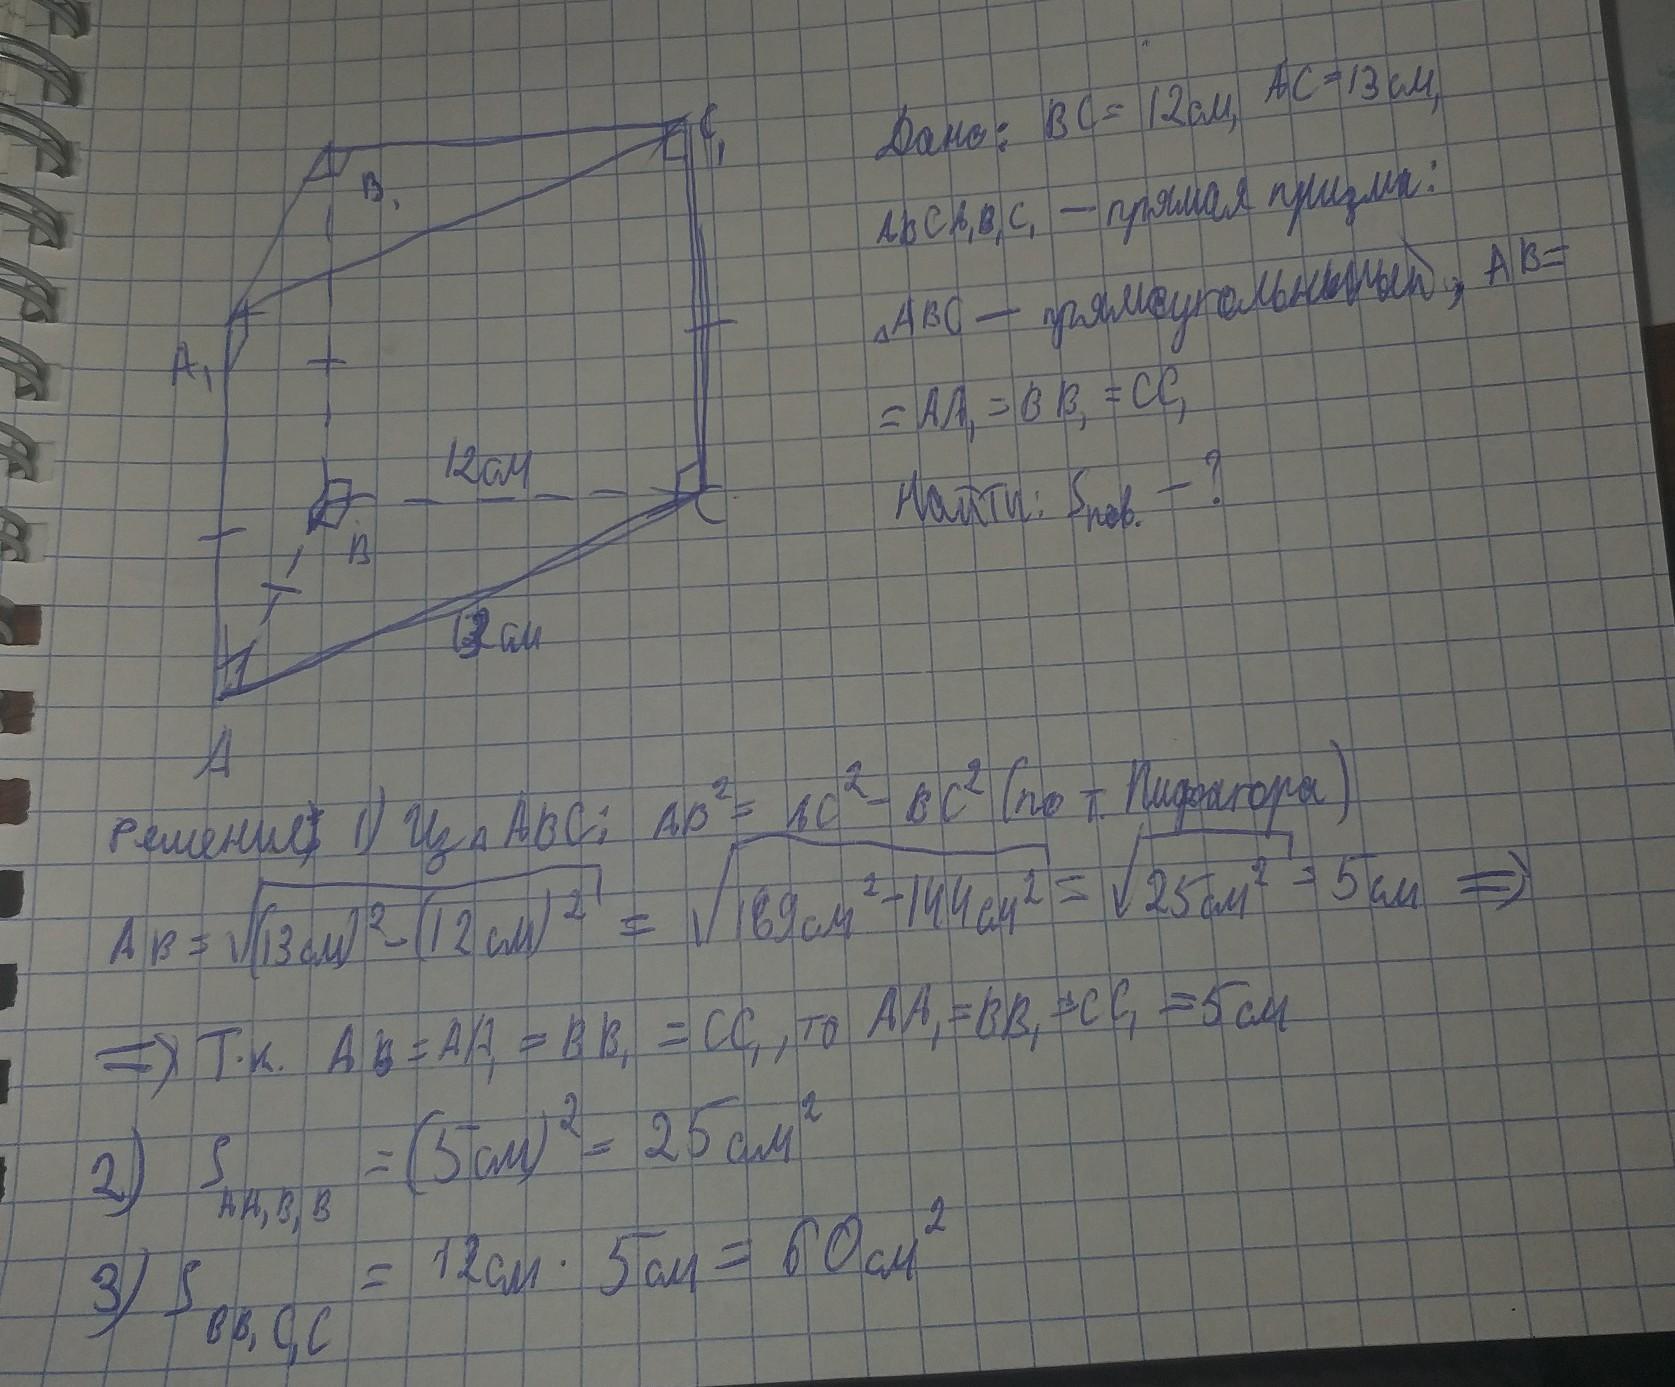 Дано: BC = 12см, AC = 13см,
ABCA₁B₁C₁ — прямая призма:
△ABC — прямоугольный, AB =
= AA₁ = BB₁ = CC₁
Найти: Sпов. - ?
C₁
B₁
A₁
12см
B
C
13см
A
Решение: 1) Из △ABC: AB² = AC² - BC² (по т. Пифагора)
AB = √((13см)² - (12см)²) = √(169см² - 144см²) = √(25см²) = 5см ⇒
⇒ Т.к. AB = AA₁ = BB₁ = CC₁, то AA₁ = BB₁ = CC₁ = 5см
2) S AA₁B₁B = (5см)² = 25см²
3) S BB₁C₁C = 12см · 5см = 60см²